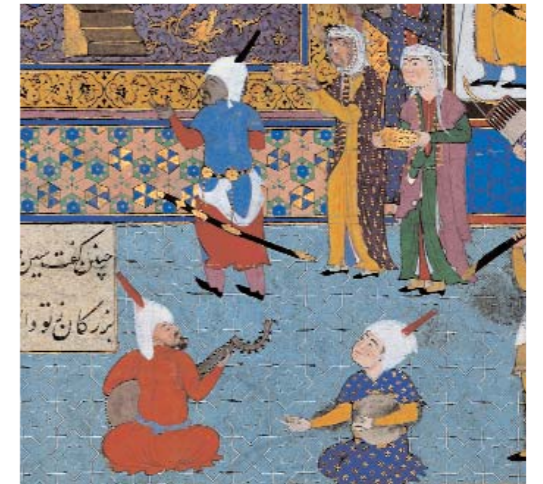 چنین گفت سین
بزرگان ز تو دا